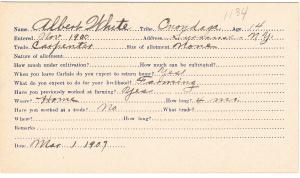 1134
Name, Albert White Tribe, Onondaga Age, 14
Entered, Nov. 1900 Address, N.Y.
Trade, Carpenter Size of allotment, None
Nature of allotment
How much under cultivation? How much can be cultivated?
When you leave Carlisle do you expect to return home? Yes
What do you expect to do for your livelihood? Farming
Have you previously worked at farming? Yes
Where? Home How long? 4 mo.
Have you previously worked at trade? No What trade?
Where? How long?
Remarks
Date, Mar 1 1907